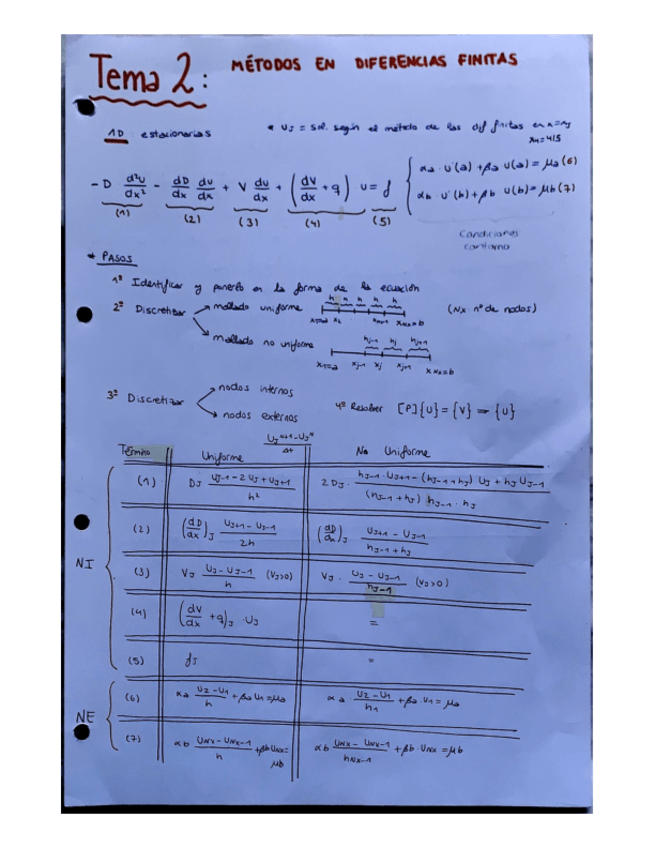 Tema 2: MÉTODOS EN DIFERENCIAS FINITAS
1D estacionarias
* UJ = sol. según el método de las dif finitas en x=xJ
-D d²u/dx² - dD/dx du/dx + V du/dx + (dV/dx + q) u = f
αa · u'(a) + βa u(a) = μa (6)
αb · u'(b) + βb u(b) = μb (7)
(1) (2) (3) (4) (5)
Condiciones
contorno
* PASOS
1º Identificar y ponerlo en la forma de la ecuación
2º Discretizar → mallado uniforme h h h h h (Nx nº de nodos)
x1=a x2 xNx-1 xNx=b
→ mallado no uniforme hj-1 hj hj+1
x1=a xj-1 xj xj+1 xNx=b
3º Discretizar → nodos internos
→ nodos externos
4º Resolver [P]{U} = {V} → {U}
UJ^n+1 - UJ^n / Δt
Término Uniforme No Uniforme
NI
(1) DJ UJ-1 - 2UJ + UJ+1 / h² 2DJ · hJ-1 · UJ+1 - (hJ-1 + hJ) UJ + hJ UJ-1 / (hJ-1 + hJ) hJ-1 · hJ
(2) (dD/dx)J UJ+1 - UJ-1 / 2h (dD/dx)J UJ+1 - UJ-1 / hJ-1 + hJ
(3) VJ UJ - UJ-1 / h (VJ>0) VJ · UJ - UJ-1 / hJ-1 (VJ>0)
(4) (dV/dx + q)J · UJ =
(5) fJ =
NE
(6) αa U2 - U1 / h + βa U1 = μa αa · U2 - U1 / h1 + βa · U1 = μa
(7) αb UNx - UNx-1 / h + βb UNx = μb αb UNx - UNx-1 / hNx-1 + βb · UNx = μb